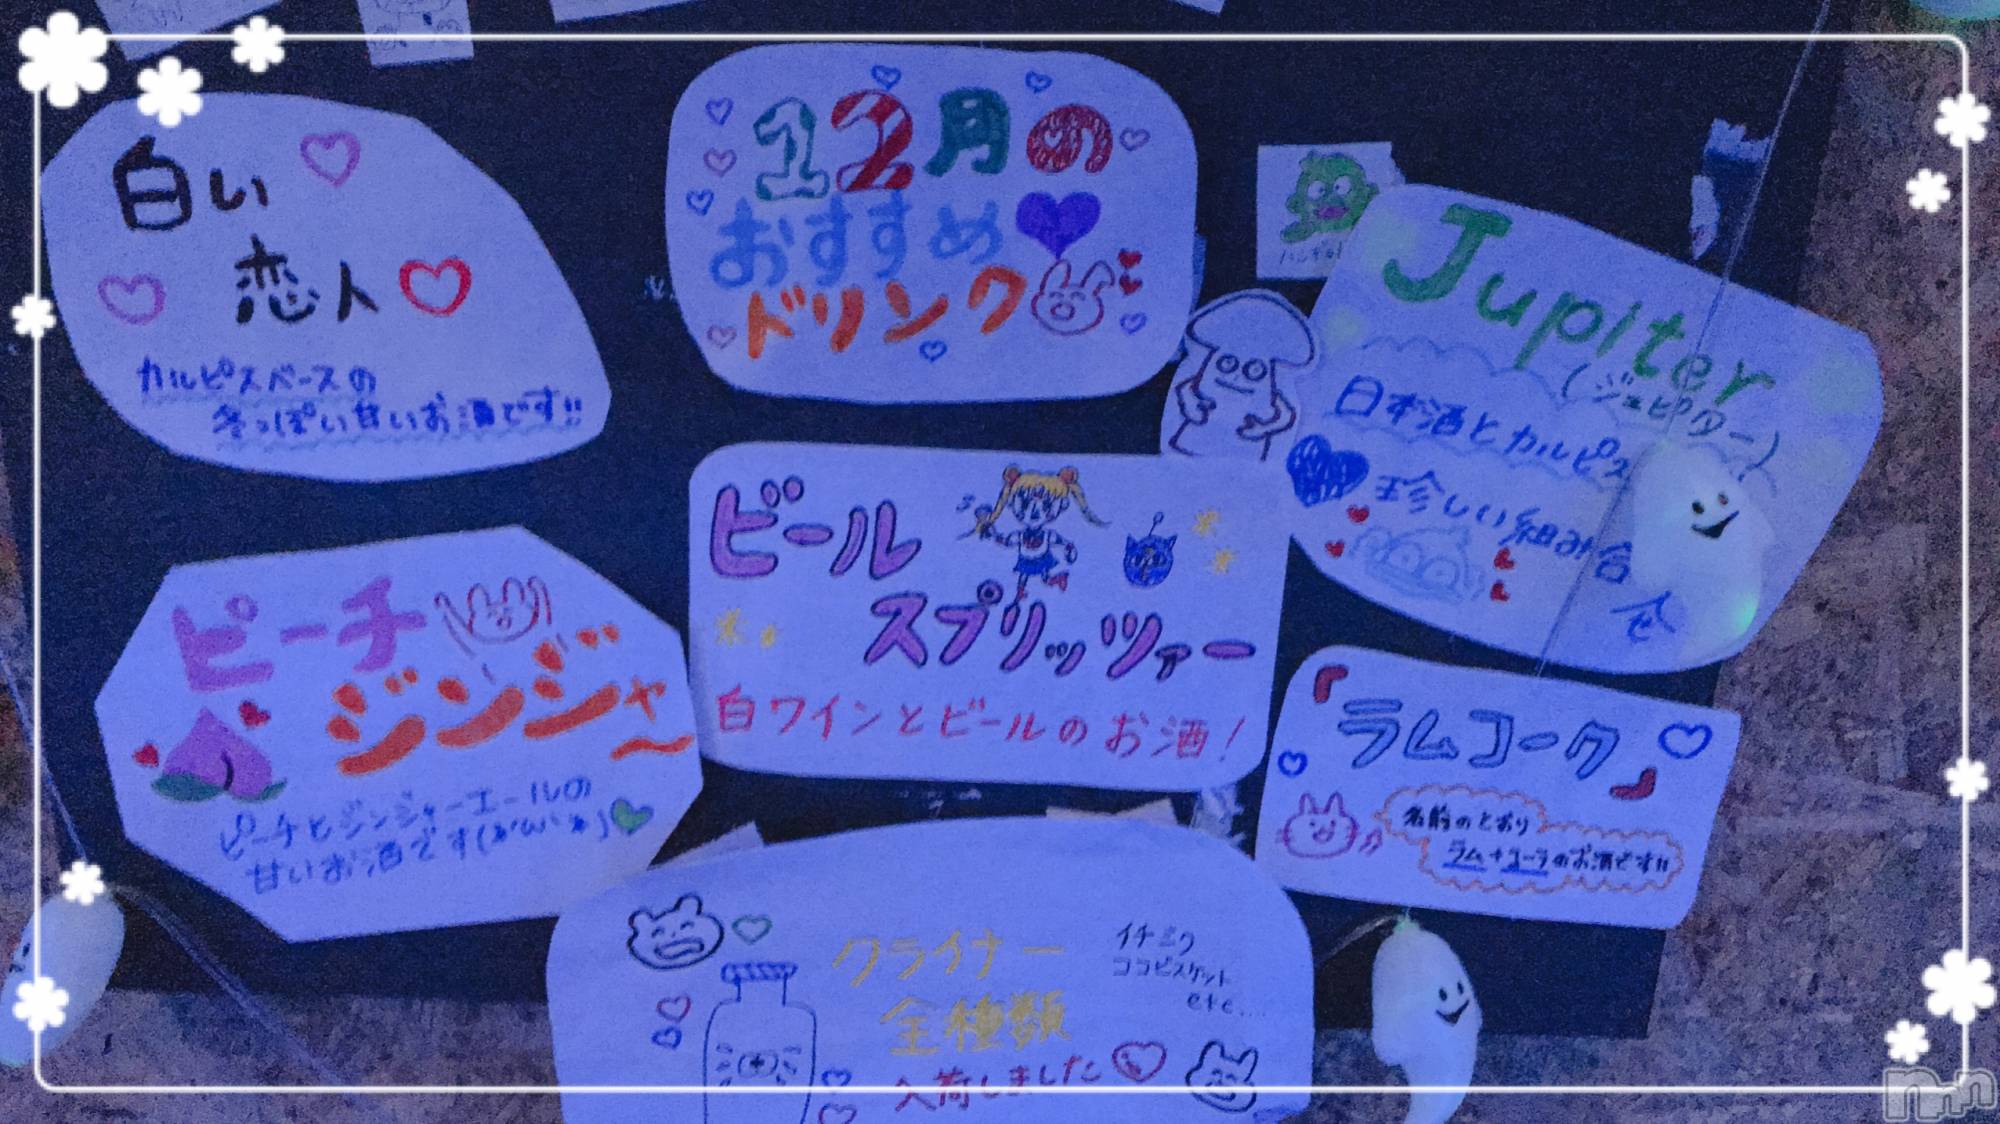 12月の
おすすめ
ドリンク
白い
恋人
カルピスベースの
冬っぽい甘いお酒です!!
Jupiter
(ジュピター)
日本酒とカルピス
珍しい組み合
せ
ピーチ
ジンジャー
ピーチとジンジャーエールの
甘いお酒です
ビール
スプリッツァー
白ワインとビールのお酒!
『ラムコーク』
名前のとおり
ラム+コーラのお酒です!!
クライナー
全種類
入荷しました
イチミク
ココビスケット
etc....